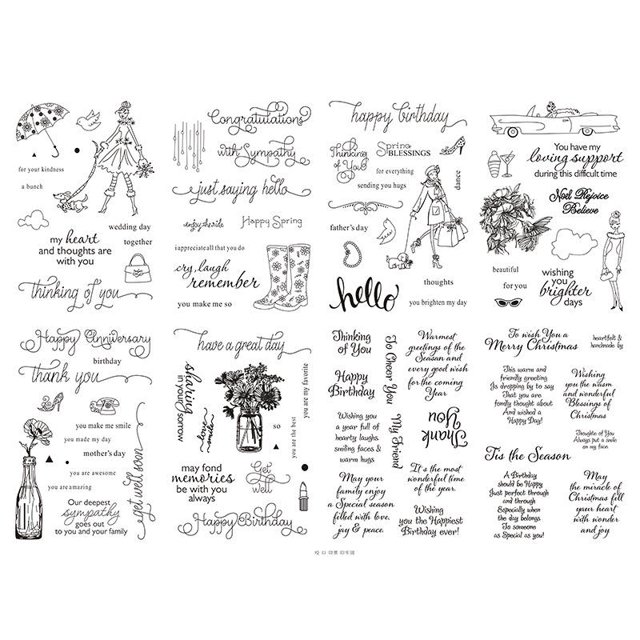 for your kindness
a bunch
wedding day
my heart
together
and thoughts are
with you
thinking of you
Congratulations
with Sympathy
just saying hello
enjoy the ride
Happy Spring
i appreciate all that you do
cry, laugh
remember
you make me so
happy birthday
Thinking
of You!
Spring
BLESSINGS
for everything
sending you hugs
dance
father's day
thoughts
hello
you brighten my day
You have my
loving support
during this difficult time
Noël Rejoice
Believe
beautiful
for you
wishing
you
brighter
days
Happy Anniversary
birthday
thank you
you make me smile
you made my day
mother's day
you are awesome
you are amazing
get well soon
Our deepest
sympathy
goes out
to you and your family
have a great day
sharing
in your
sorrow
you are my favorite
you are the best
so
may fond
memories
be with you
always
Get
well
Happy Birthday
Thinking
of You
To Cheer You
Warmest
greetings of the
Season and
every good wish
for the coming
Year
Happy
Birthday
My Friend
Thank
You
Wishing you
a year full of
hearty laughs
smiling faces &
warm hugs
It's the most
wonderful time
of the year
May your
family enjoy
a Special season
filled with love,
joy & peace
Wishing
you the Happiest
Birthday ever!
To wish You a
Merry Christmas
heartfelt &
handmade by
This warm and
friendly greeting
Is dropping by to say
That you are
family thought about
And wished a
Happy Day!
Wishing
you the warm
and wonderful
Blessings of
Christmas
Thoughts of You
Always put a smile
on my face
Tis the Season
A Birthday
should be Happy
Just perfect through
and through
Especially when
the day belongs
To someone
as Special as you!
May
the miracle of
Christmas fill
your heart
with wonder
and joy